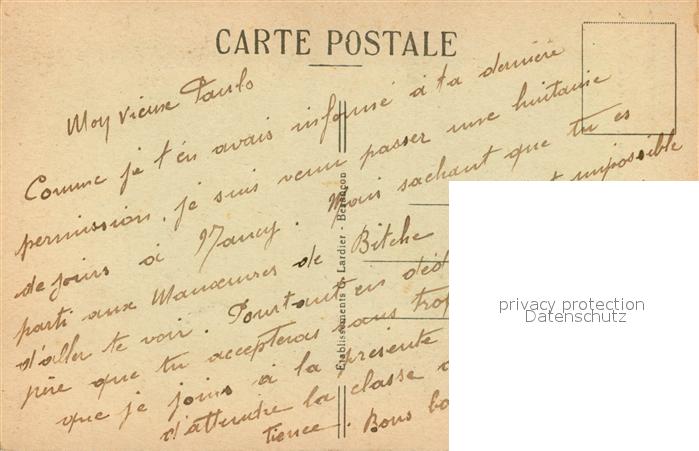 CARTE POSTALE
Mon vieux Paulo
Comme je t'en avais informé à ta dernière
permission, je suis venu passer une huitaine
de jours à Nancy. Mais sachant que tu es
parti aux Manœuvres de Bitche impossible
d'aller te voir. Pourtant en
père que tu accepteras sans trop
que je joins à la présente
d'attendre la classe
tience. Bons
Etablissements C. Lardier - Besançon
privacy protection
Datenschutz